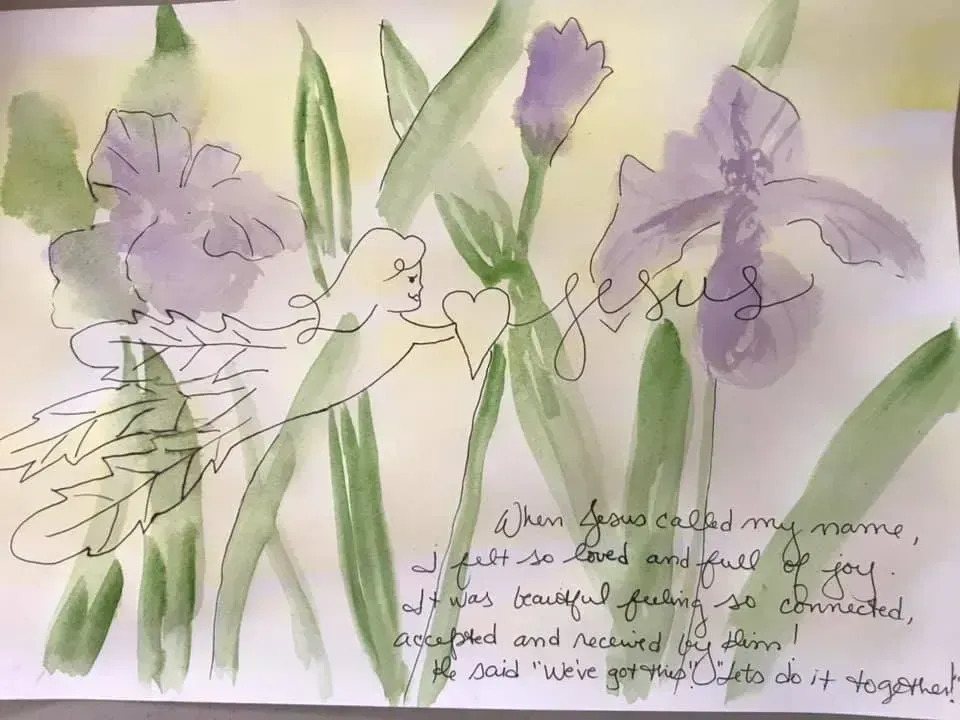 Jesus
When Jesus called my name,
I felt so loved and full of joy.
It was beautiful feeling so connected,
accepted and received by Him!
He said "We've got this"! "Lets do it together!"